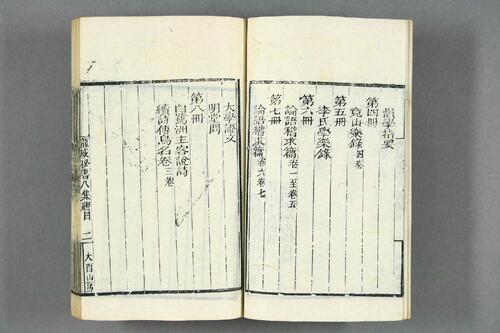 韻學指要
第四冊
竟山樂錄四卷
第五冊
李氏學樂錄
第六冊
論語稽求篇卷一至卷五
第七冊
論語稽求篇卷六卷七
大學證文
明堂問
第八冊
白鷺洲主客說詩
續詩傳鳥名卷三卷
龍威祕書八集總目 二 大酉山房